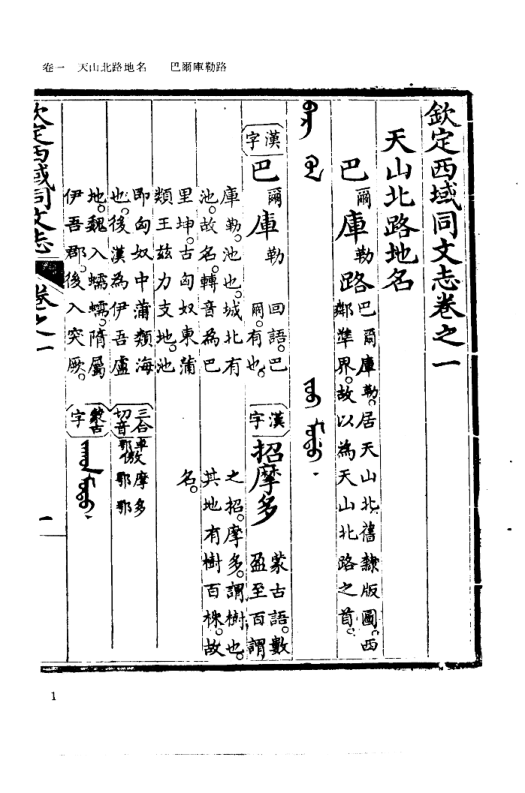 卷一　天山北路地名　　巴爾庫勒路
欽定西域同文志卷之一
天山北路地名
巴爾庫勒路
巴爾庫勒。居天山北。舊隸版圖。西
鄰準界。故以為天山北路之首。
漢字
巴爾庫勒
回語。巴
爾。有也。
庫勒。池也。城北有
池。故名。轉音為巴
里坤。古匈奴東蒲
類王茲力支地。池
即匈奴中蒲類海
也。後漢為伊吾盧
地。魏入蠕蠕。隋屬
伊吾郡。後入突厥。
漢字
招摩多
蒙古語。數
盈至百謂
之招。摩多。謂樹也。
其地有樹百株。故
名。
三合切音
蒙古字
欽定西域同文志
卷之一
一
1